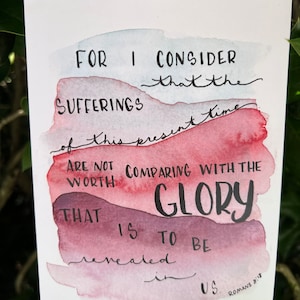 FOR I CONSIDER
that the
SUFFERINGS
of this present time
ARE NOT
WORTH COMPARING WITH THE
GLORY
THAT IS TO BE
revealed
in US.
ROMANS 8:18